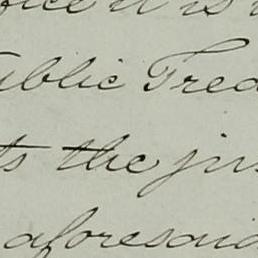 fice it is
ublic Trea
ts the jus
aforesaid